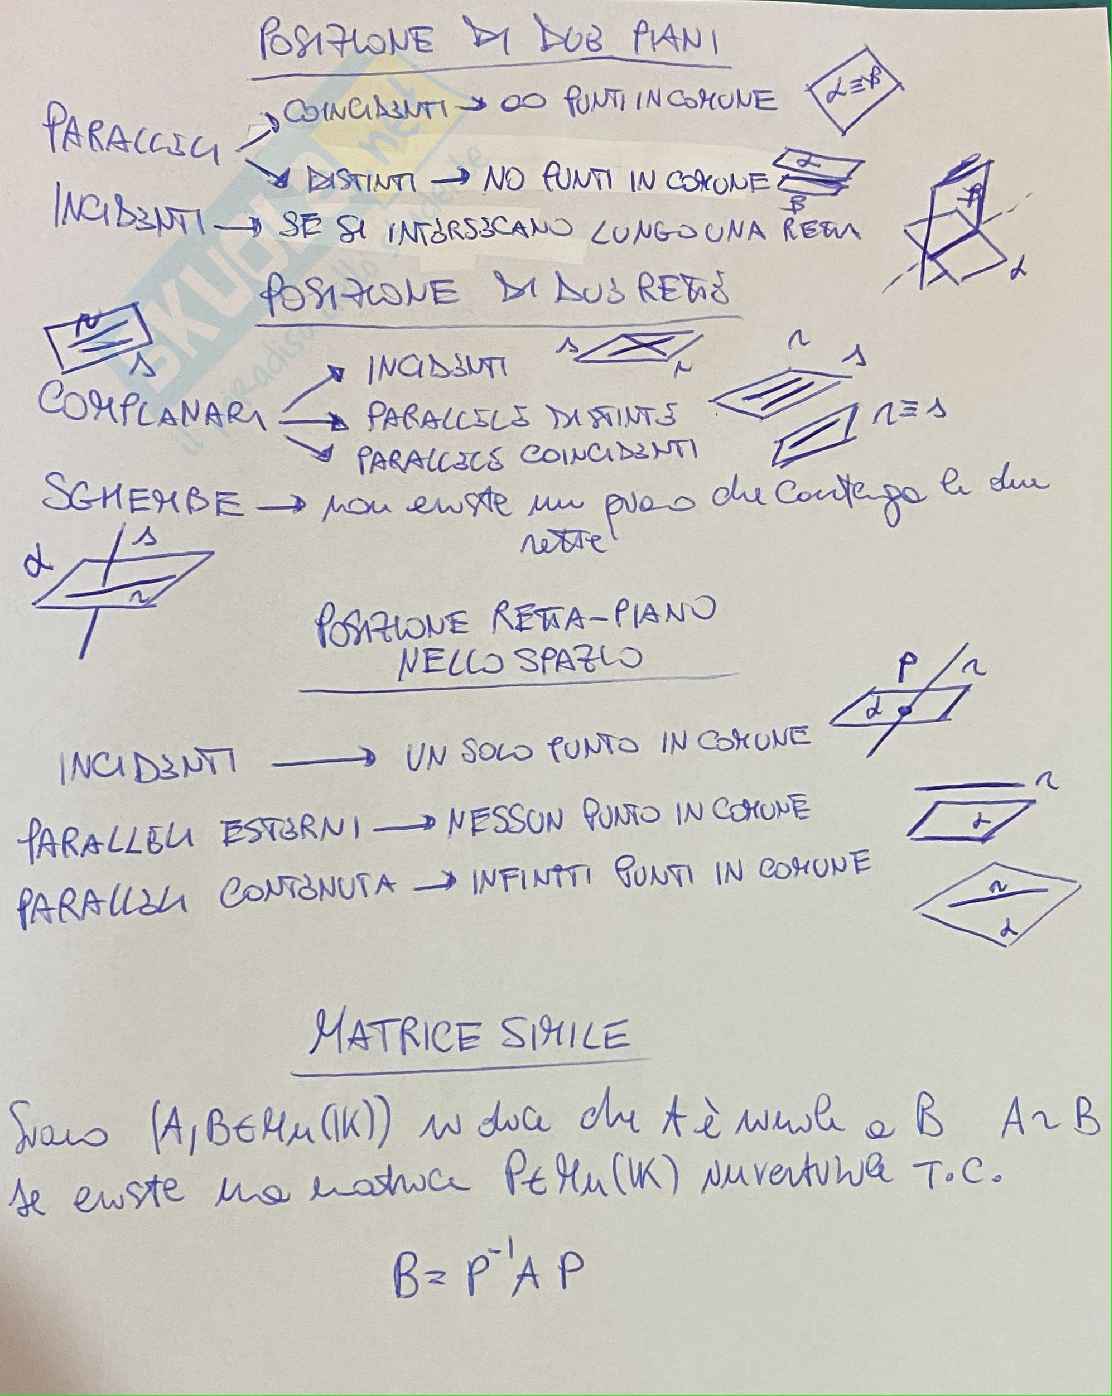 POSIZIONE DI DUE PIANI
PARALLELI → COINCIDENTI → ∞ PUNTI IN COMUNE α≡β
→ DISTINTI → NO PUNTI IN COMUNE α β
INCIDENTI → SE SI INTERSECANO LUNGO UNA RETTA β α
POSIZIONE DI DUE RETTE
r s
COMPLANARI → INCIDENTI s r
→ PARALLELE DISTINTE r s
→ PARALLELE COINCIDENTI r≡s
SGHEMBE → non esiste un piano che contenga le due
rette
α s r
POSIZIONE RETTA-PIANO
NELLO SPAZIO
INCIDENTI → UN SOLO PUNTO IN COMUNE P r α
PARALLELI ESTERNI → NESSUN PUNTO IN COMUNE r α
PARALLELI CONTENUTA → INFINITI PUNTI IN COMUNE r α
MATRICE SIMILE
Siano (A,B∈Mn(IK)) si dice che A è simile a B A~B
se esiste una matrice P∈Mn(IK) invertibile T.C.
B = P⁻¹A P
SKUOLA.net